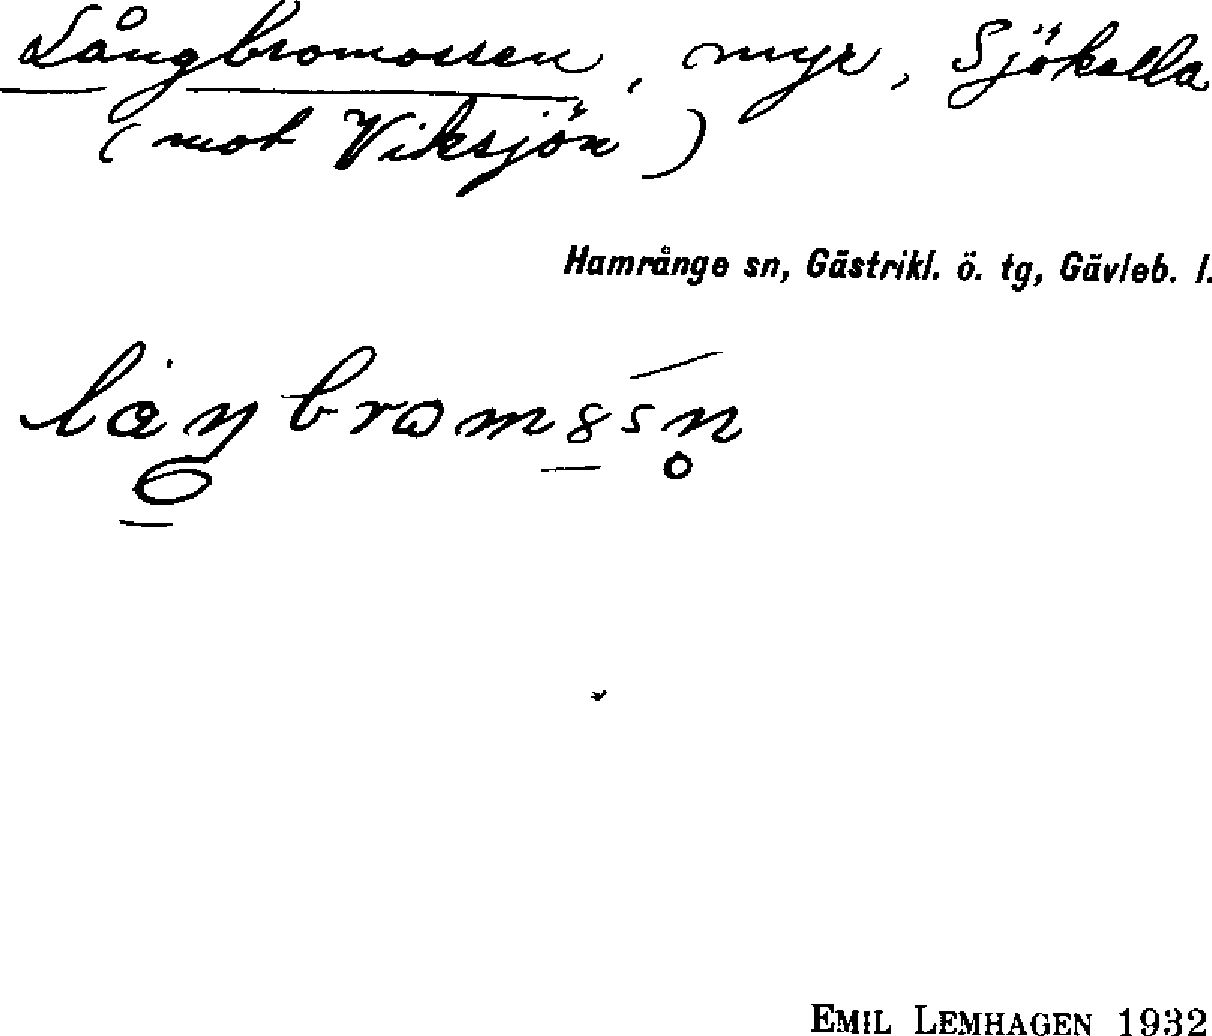 Långbromossen, myr, Sjökalla
(mot Viksjön)
Hamrånge sn, Gästrikl. ö. tg, Gävleb. l.
EMIL LEMHAGEN 1932